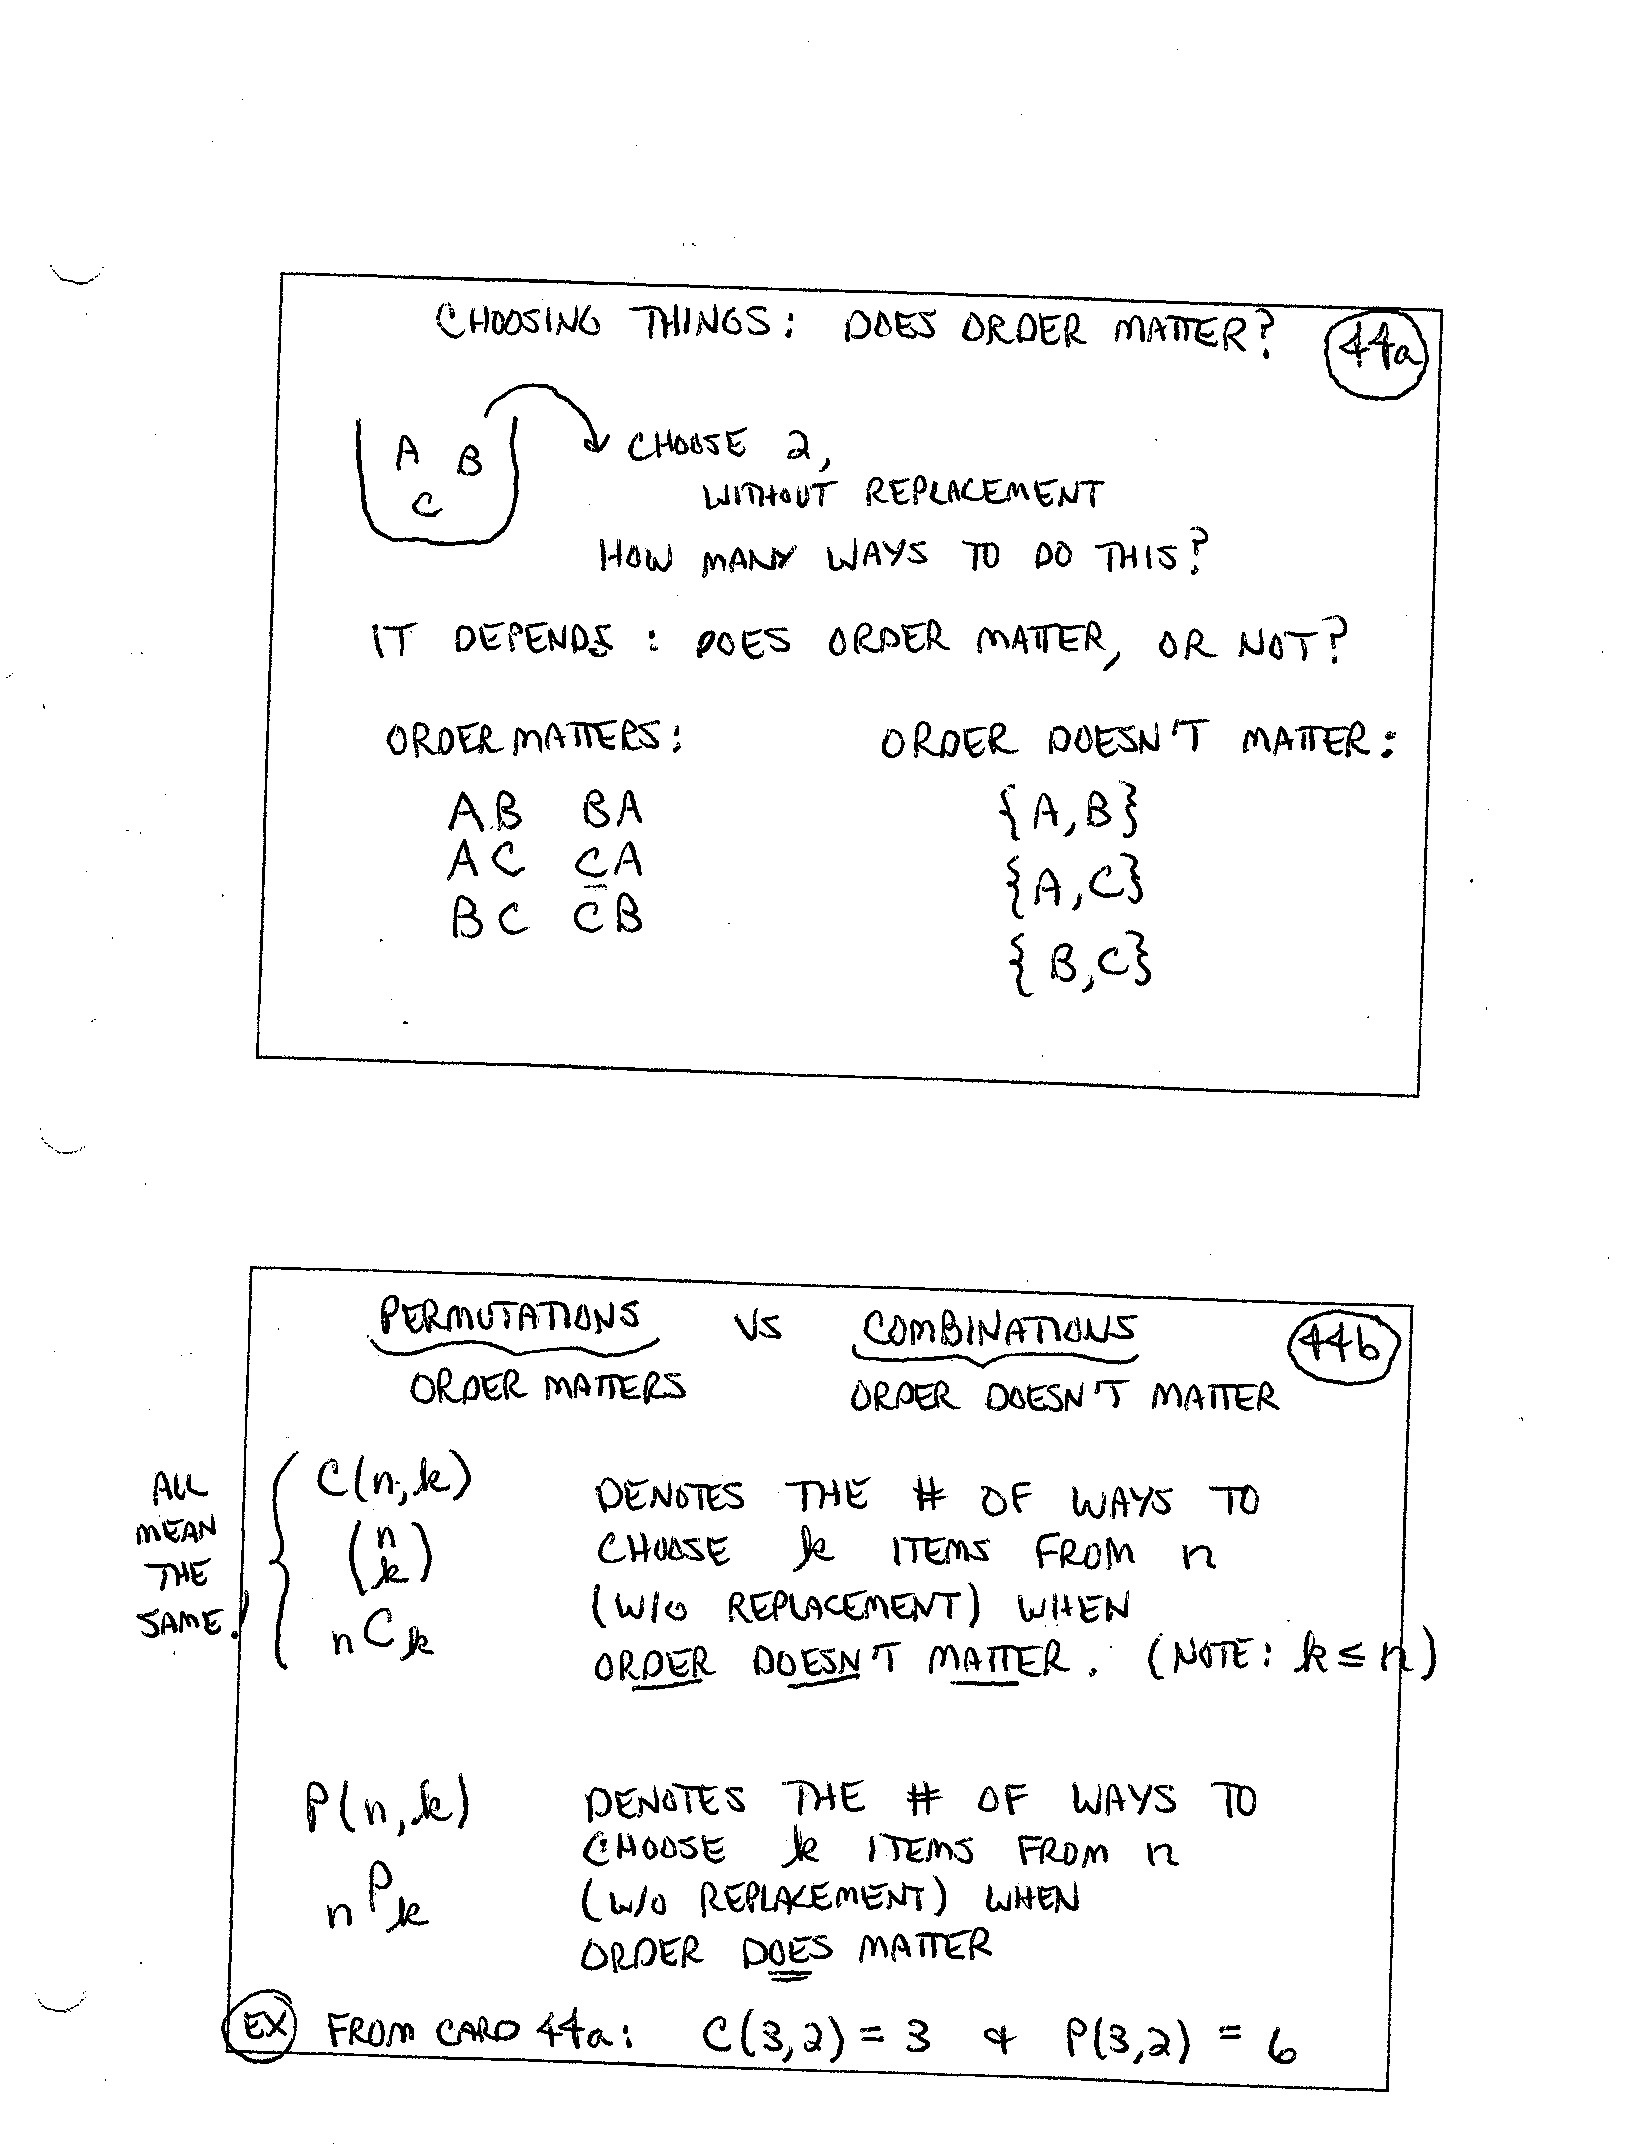 CHOOSING THINGS: DOES ORDER MATTER?
44a
A B
C
CHOOSE 2,
WITHOUT REPLACEMENT
HOW MANY WAYS TO DO THIS?
IT DEPENDS: DOES ORDER MATTER, OR NOT?
ORDER MATTERS:
AB BA
AC CA
BC CB
ORDER DOESN'T MATTER:
{A,B}
{A,C}
{B,C}
PERMUTATIONS VS COMBINATIONS
44b
ORDER MATTERS ORDER DOESN'T MATTER
ALL
MEAN
THE
SAME!
C(n,k)
(n
k)
nCk
DENOTES THE # OF WAYS TO
CHOOSE k ITEMS FROM n
(W/O REPLACEMENT) WHEN
ORDER DOESN'T MATTER. (NOTE: k ≤ n)
P(n,k)
nPk
DENOTES THE # OF WAYS TO
CHOOSE k ITEMS FROM n
(W/O REPLACEMENT) WHEN
ORDER DOES MATTER
EX FROM CARD 44a: C(3,2) = 3 & P(3,2) = 6